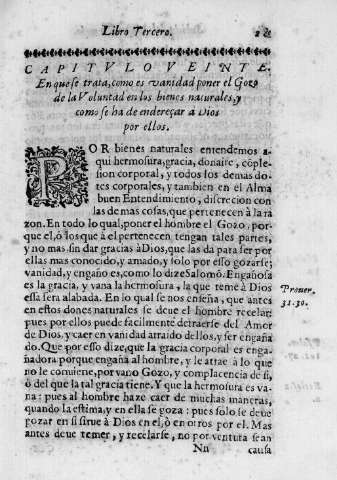 Libro Tercero.
CAPITVLO VEINTE.
En que se trata, como es vanidad poner el Gozo
de la Voluntad en los bienes naturales, y
como se ha de endereçar à Dios
por ellos.
POR bienes naturales entendemos a-
qui hermosura, gracia, donaire, cõple-
sion corporal, y todos los demas do-
tes corporales, y tambien en el Alma
buen Entendimiento, discrecion con
las de mas cosas, que pertenecen à la ra
zon. En todo lo qual, poner el hombre el Gozo, por-
que el, ò los que à el pertenecen tengan tales partes,
y no mas sin dar gracias à Dios, que las dà para ser por
ellas mas conocido, y amado, y solo por esso gozarse;
vanidad, y engaño es, como lo dize Salomõ. Engañosa
es la gracia, y vana la hermosura, la que teme à Dios
essa serà alabada. En lo qual se nos enseña, que antes
en estos dones naturales se deue el hombre recelar;
pues por ellos puede facilmente detraerse del Amor
de Dios, y caer en vanidad atraido dellos, y ser engaña
do. Que por esso dize, que la gracia corporal es enga-
ñadora porque engaña al hombre, y le atrae à lo que
no le conuiene, por vano Gozo, y complacencia de si,
ò del que la tal gracia tiene. Y que la hermosura es va-
na: pues al hombre haze caer de muchas maneras,
quando la estima, y en ella se goza: pues solo se deue
gozar en si sirue à Dios en el, ò en otros por el. Mas
antes deue temer, y recelarse, no por ventura sean
Prouer.
31.30.
Nn causa